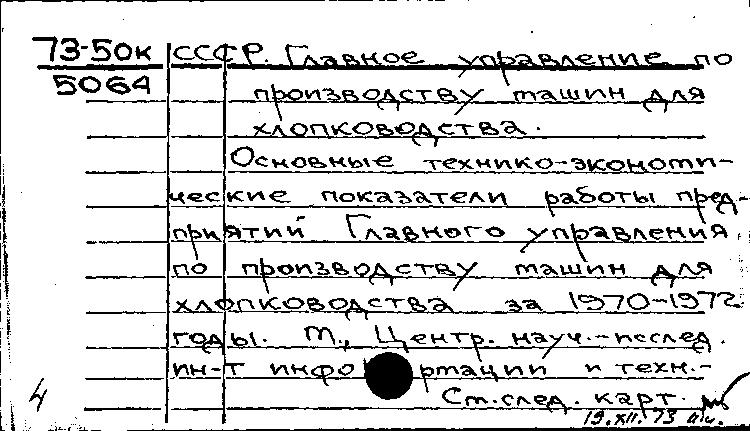 73-50к СССР. Главное управление по
5064 производству машин для
хлопководства.
Основные технико-экономи-
ческие показатели работы пред-
приятий Главного управления
по производству машин для
хлопководства за 1970-1972
годы. М., Центр. науч.-исслед.
ин-т инфо ртации и техн.-
4 См.след. карт.
19.XII.73